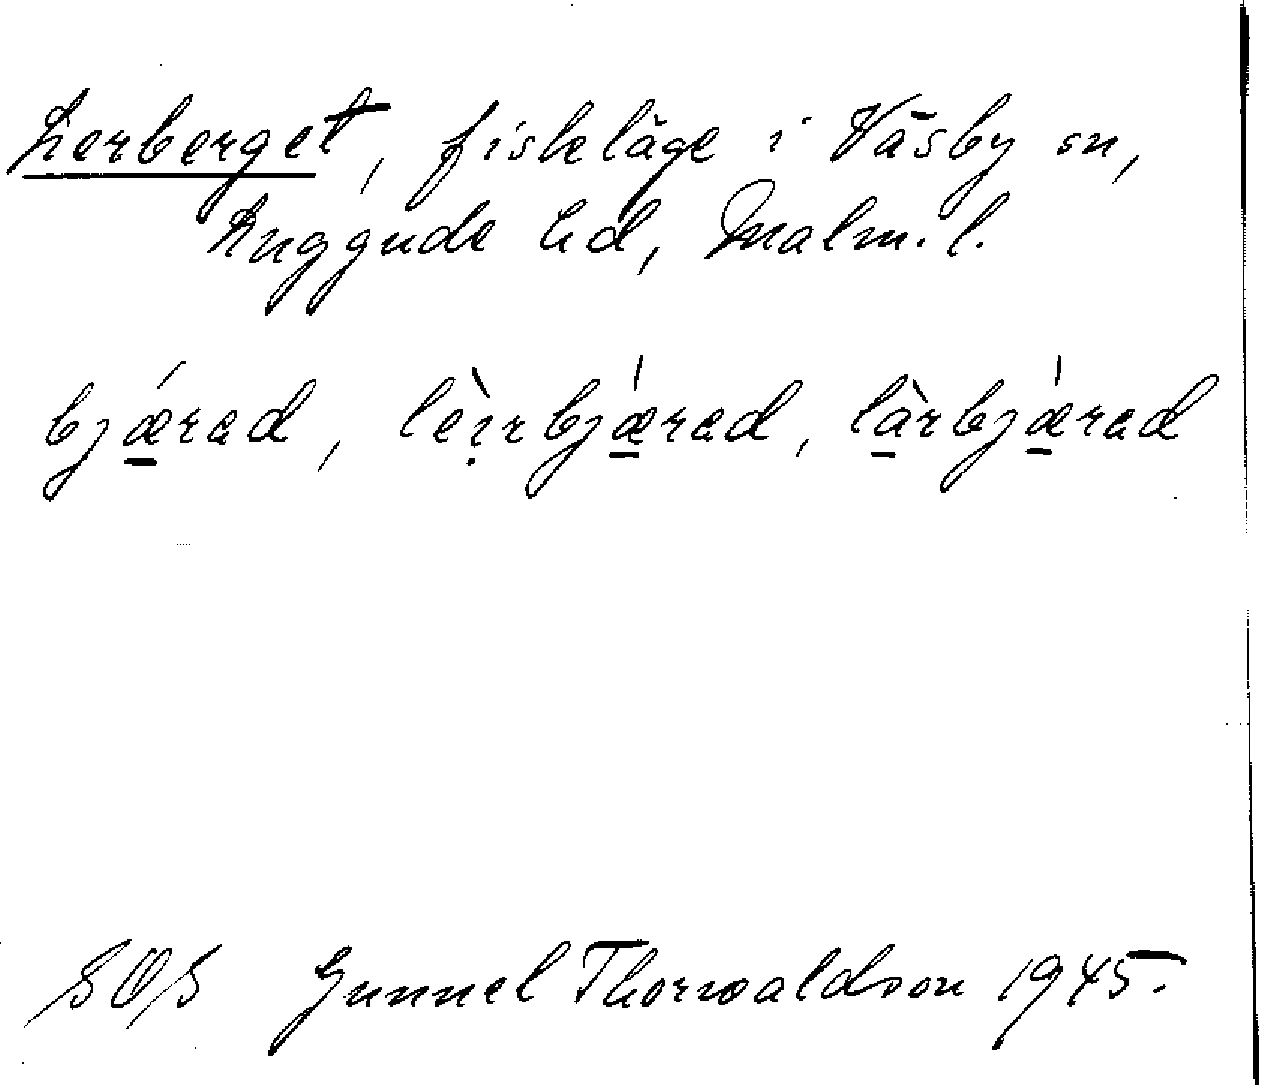 Lerberget, fiskeläge i Väsby sn,
Luggude hd, Malm. l.
bjǽ̠rad, lèı̣rbjǽ̠rad, là̠rbjǽ̠rad
SOS Gunnel Thorwaldson 1945.